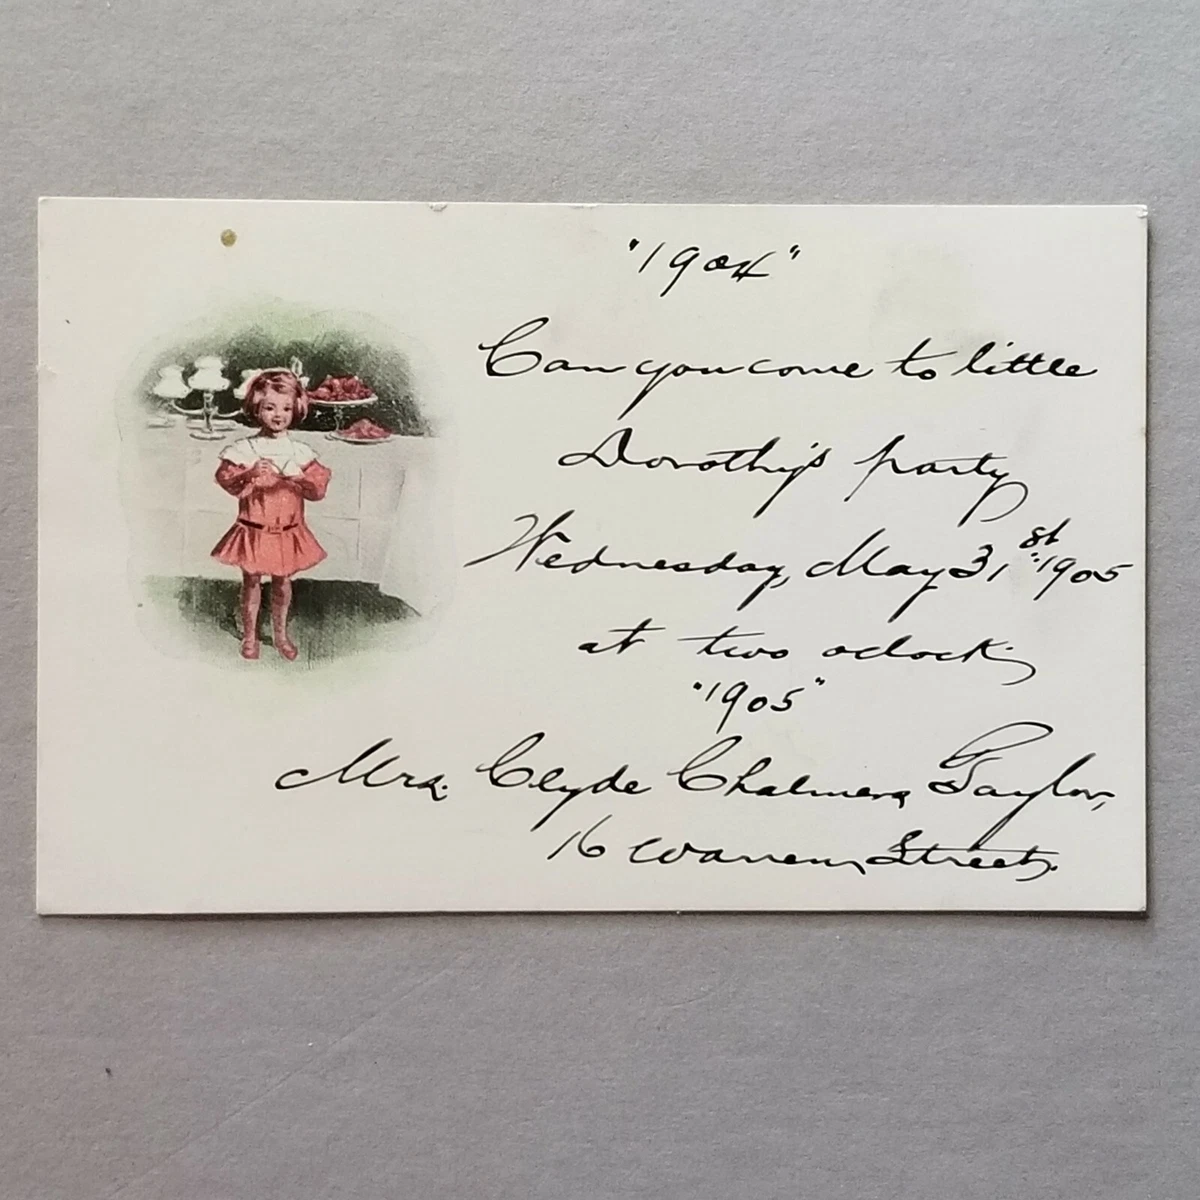 "1904"
Can you come to little
Dorothy's party
Wednesday, May 31st 1905
at two oclock
"1905"
Mrs. Clyde Chalmers Taylor,
16 Warren Street.